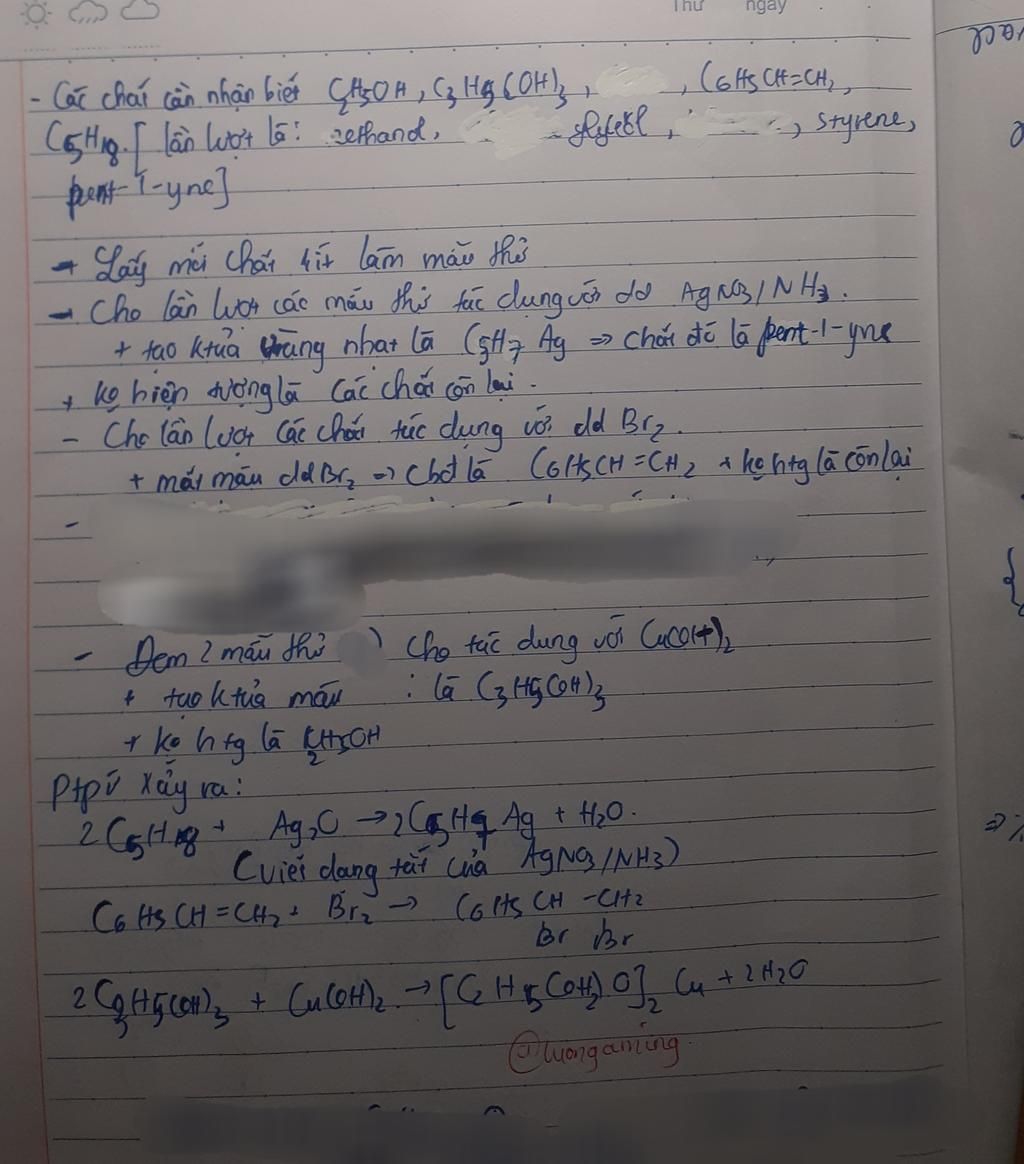 Thứ ngày
- Các chất cần nhận biết C2H5OH, C3H5(OH)3, , C6H5CH=CH2,
C5H8. [ lần lượt là: , , styrene,
pent-1-yne]
→ Lấy mỗi chất 1 ít làm mẫu thử
- Cho lần lượt các mẫu thử tác dụng với dd AgNO3/NH3.
+ tạo ktủa vàng nhạt là C5H7Ag => chất đó là pent-1-yne
+ ko hiện tượng là các chất còn lại.
- Cho lần lượt các chất tác dụng với dd Br2.
+ mất màu dd Br2 => chđ là C6H5CH=CH2 + ko htg là còn lại
-
- Đem 2 mẫu thử ) cho tác dụng với Cu(OH)2
+ tạo ktủa màu : là C3H5(OH)3
+ ko htg là C2H5OH
Ptpứ xảy ra:
2C5H8 + Ag2O → 2C5H7Ag + H2O.
(viết dạng tắt của AgNO3/NH3)
C6H5CH=CH2 + Br2 → C6H5CH-CH2
Br Br
2C3H5(OH)3 + Cu(OH)2 → [C2H5(OH)2O]2Cu + 2H2O
@luongaming